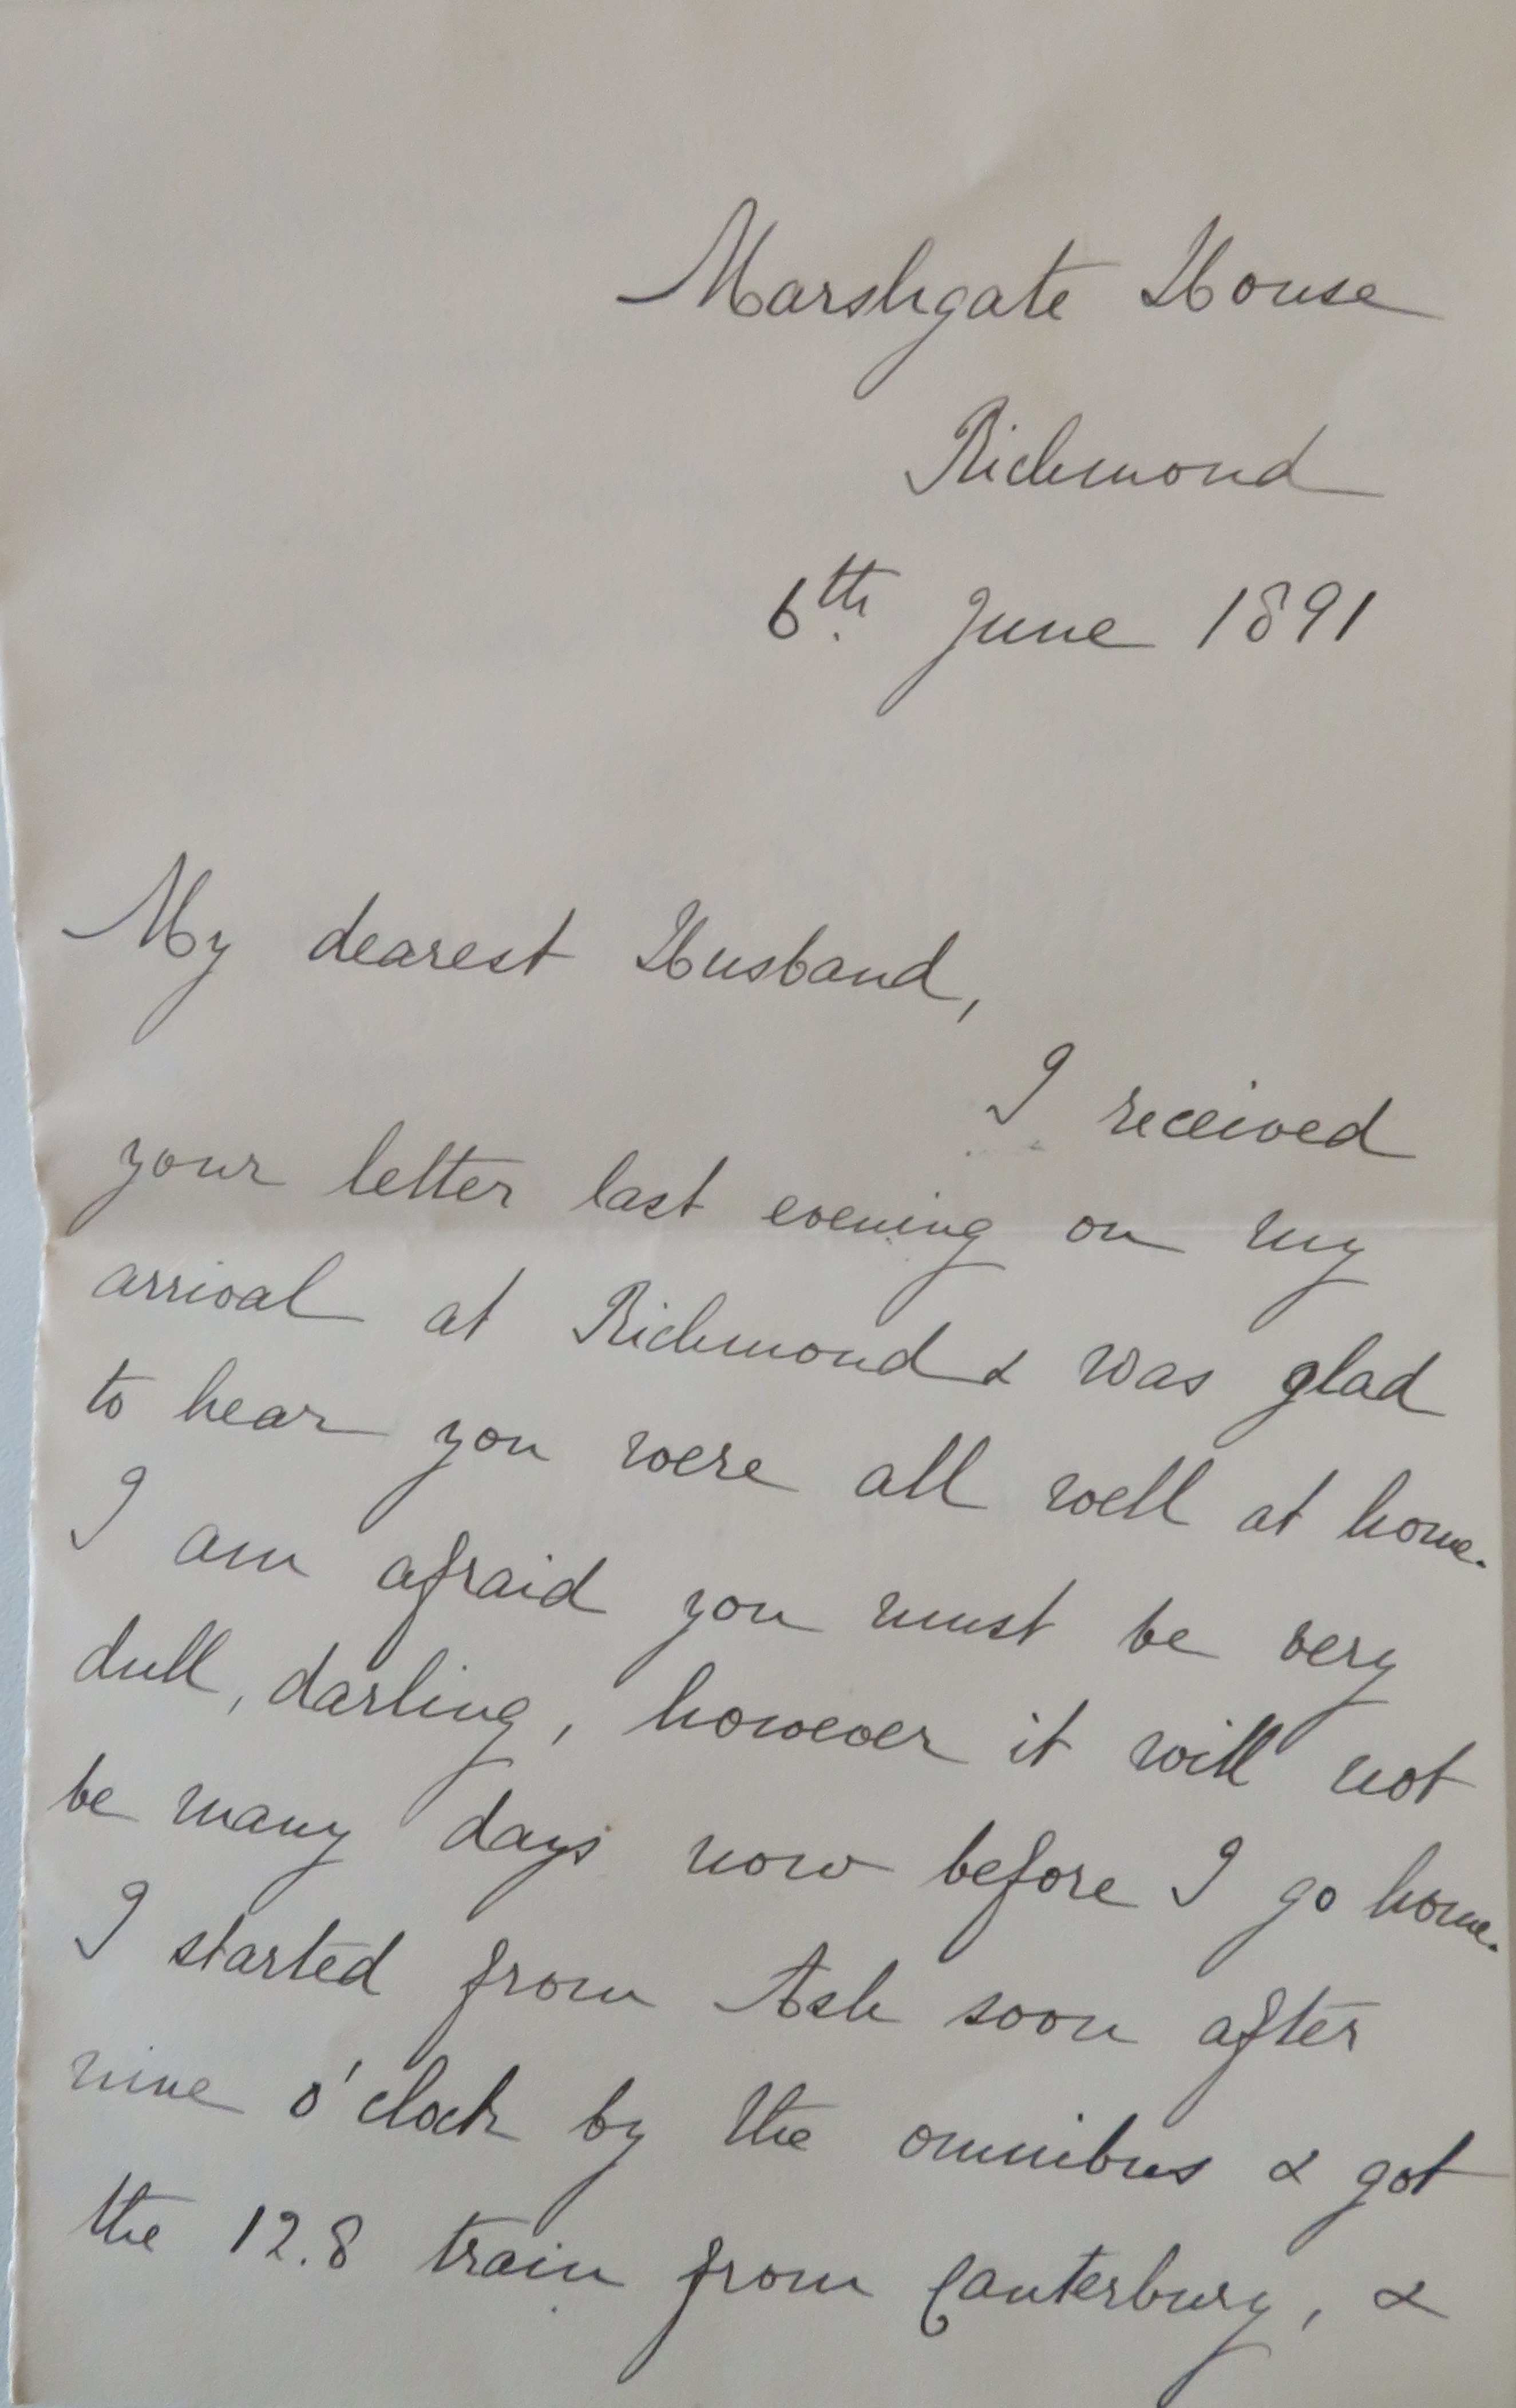 Marshgate House
Richmond
6th. June 1891
My dearest Husband,
I received
your letter last evening on my
arrival at Richmond & was glad
to hear you were all well at home.
I am afraid you must be very
dull, darling, however it will not
be many days now before I go home.
I started from Ash soon after
nine o'clock by the omnibus & got
the 12.8 train from Canterbury, &